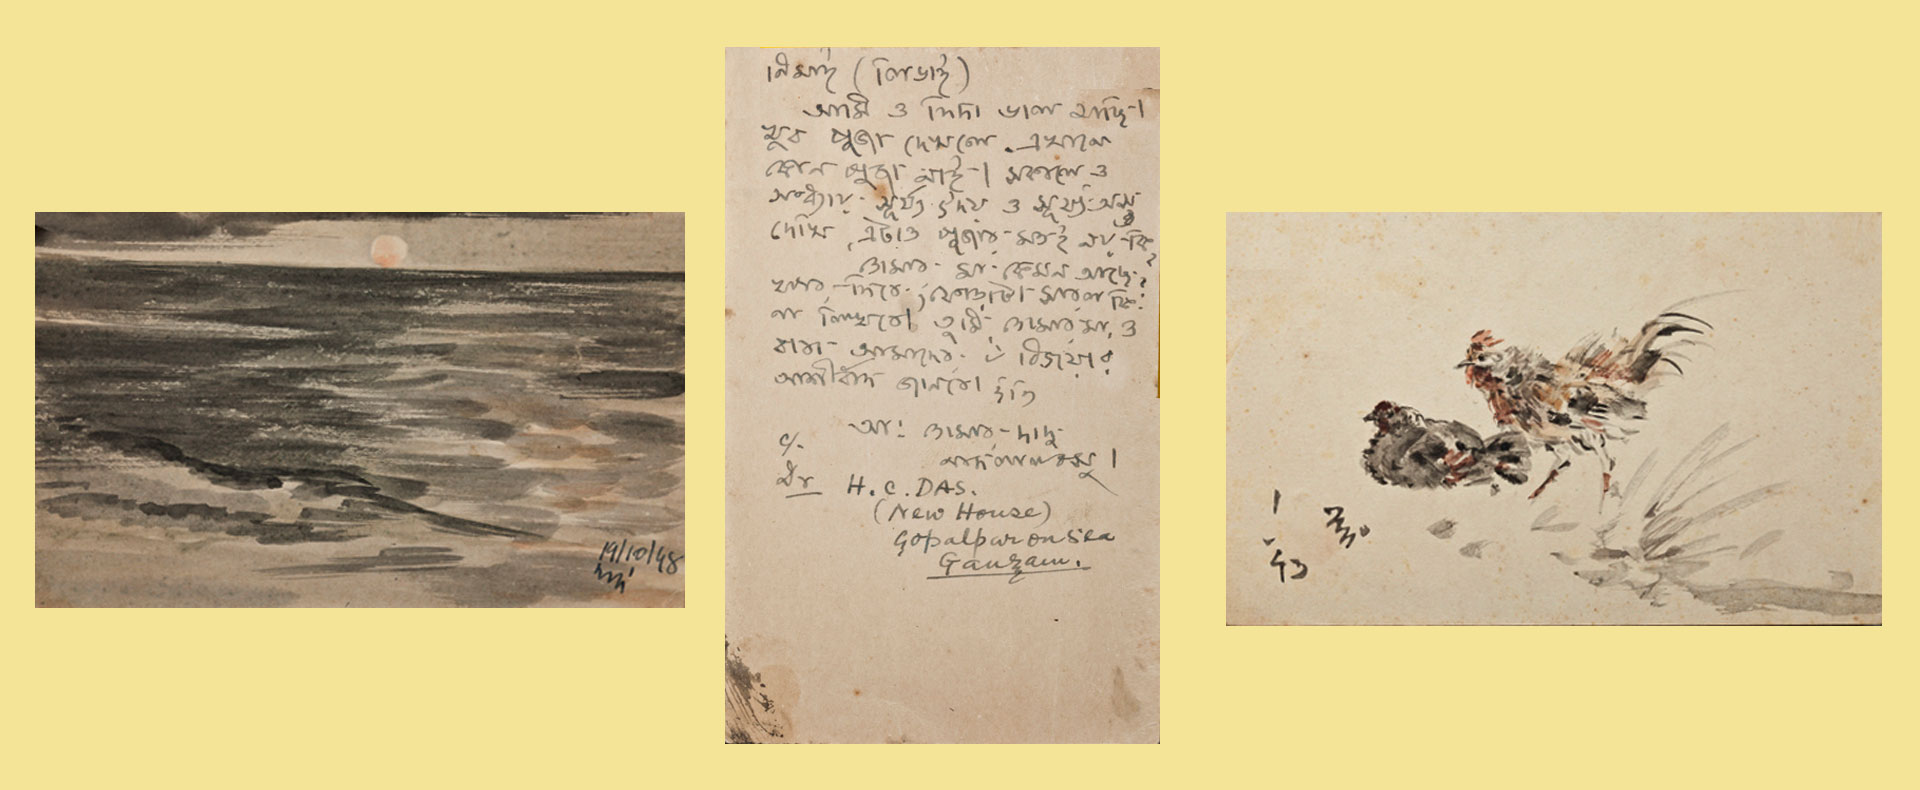 19/10/48
নন্দ
নিমাই (নিতাই)
আমি ও দিদা ভাল আছি।
খুব পূজা দেখলে. এখানে
কোন পূজা নাই। সকালে ও
সন্ধ্যায় সূর্য্য উদয় ও সূর্য্য অস্ত
দেখি, এটাও পূজার মতই নয় কি?
তোমার মা কেমন আছে?
খবর দিবে, ফোড়াটা সারল কি?
না লিখবে। তুমি, তোমার মা, ও
বাবা আমাদের ৺ বিজয়ার
আশীর্ব্বাদ জানবে। ইতি
আঃ তোমার দাদু
নন্দলাল বসু।
c/.
Dr H. C. DAS.
(New House)
Gopalpur on Sea
Ganjam.
নন্দ